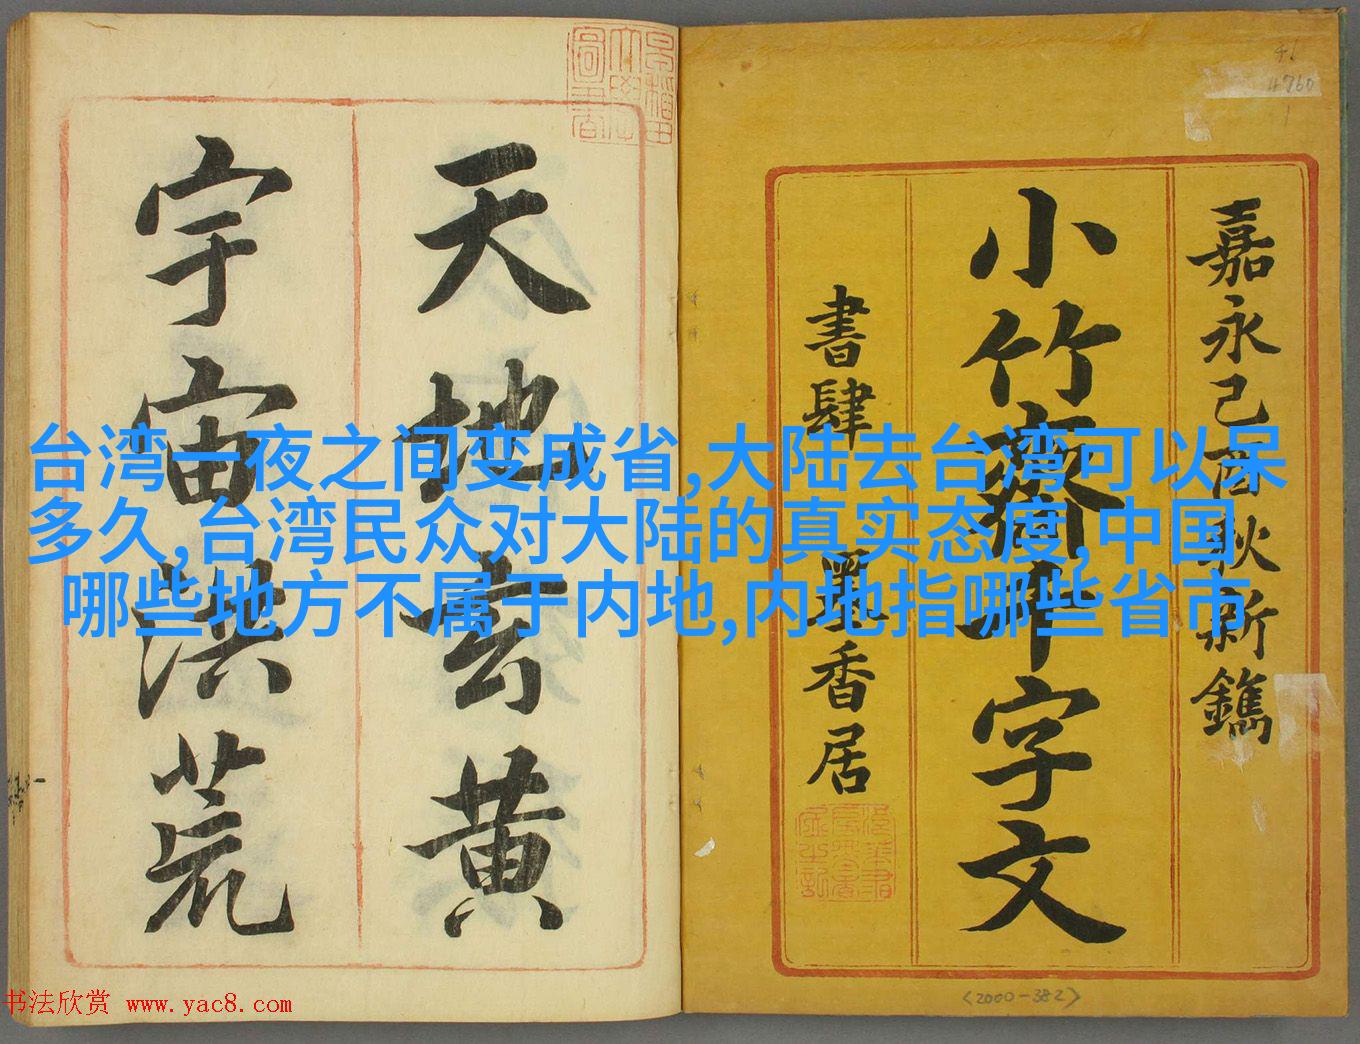 嘉永己酉秋新鐫
小竹齋千字文
書肆 墨香居
天地玄黄
宇宙洪荒
台湾一夜之间变成省,大陆去台湾可以呆
多久,台湾民众对大陆的真实态度,中国
哪些地方不属于内地,内地指哪些省市
46
4760
1
<2000-382>
书法欣赏 www.yac8.com